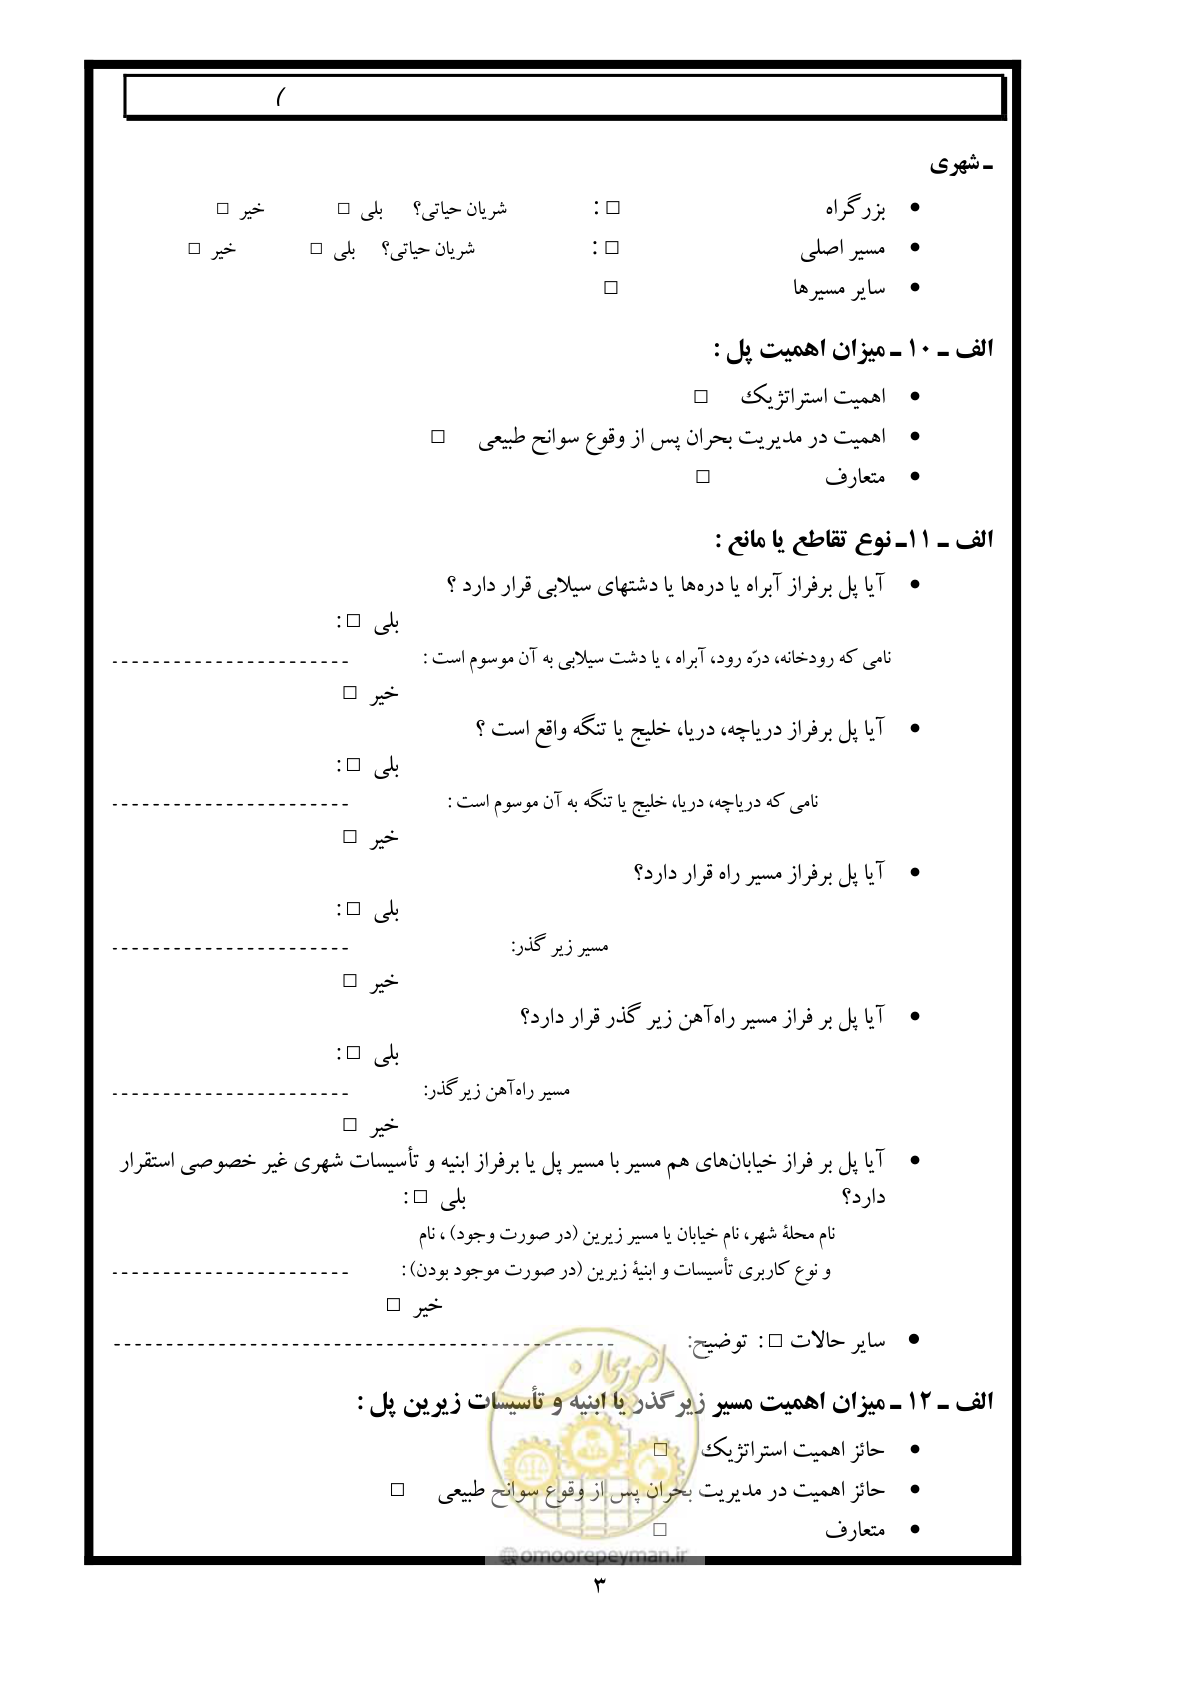 )
ـ شهری
• بزرگراه □ : شریان حیاتی؟ بلی □ خیر □
• مسیر اصلی □ : شریان حیاتی؟ بلی □ خیر □
• سایر مسیرها □
الف ـ ۱۰ ـ میزان اهمیت پل :
• اهمیت استراتژیک □
• اهمیت در مدیریت بحران پس از وقوع سوانح طبیعی □
• متعارف □
الف ـ ۱۱ـ نوع تقاطع یا مانع :
• آیا پل برفراز آبراه یا دره‌ها یا دشتهای سیلابی قرار دارد ؟
بلی □ :
نامی که رودخانه، درّه رود، آبراه ، یا دشت سیلابی به آن موسوم است : -----------------------
خیر □
• آیا پل برفراز دریاچه، دریا، خلیج یا تنگه واقع است ؟
بلی □ :
نامی که دریاچه، دریا، خلیج یا تنگه به آن موسوم است : -----------------------
خیر □
• آیا پل برفراز مسیر راه قرار دارد؟
بلی □ :
مسیر زیر گذر: -----------------------
خیر □
• آیا پل بر فراز مسیر راه‌آهن زیر گذر قرار دارد؟
بلی □ :
مسیر راه‌آهن زیرگذر: -----------------------
خیر □
• آیا پل بر فراز خیابان‌های هم مسیر با مسیر پل یا برفراز ابنیه و تأسیسات شهری غیر خصوصی استقرار
دارد؟ بلی □ :
نام محلهٔ شهر، نام خیابان یا مسیر زیرین (در صورت وجود) ، نام
و نوع کاربری تأسیسات و ابنیهٔ زیرین (در صورت موجود بودن) : -----------------------
خیر □
• سایر حالات □ : توضیح: ------------------------------------------------
الف ـ ۱۲ ـ میزان اهمیت مسیر زیرگذر یا ابنیه و تأسیسات زیرین پل :
• حائز اهمیت استراتژیک □
• حائز اهمیت در مدیریت بحران پس از وقوع سوانح طبیعی □
• متعارف □
امور پیمان
@omoorepeyman.ir
۳